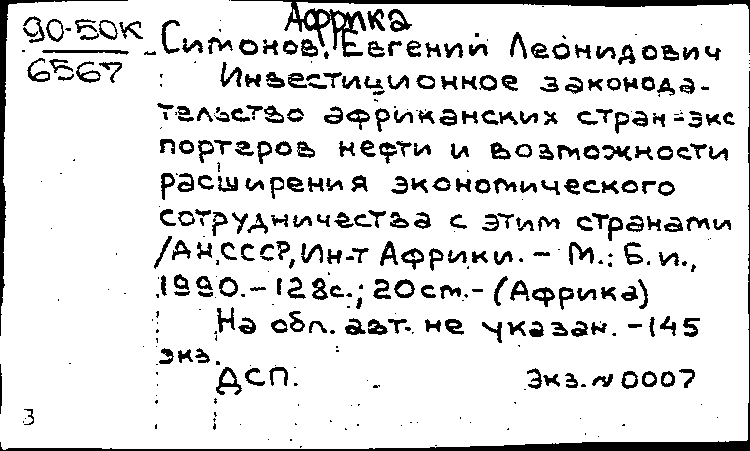 Африка
90-50К
6567
Симонов, Евгений Леонидович
Инвестиционное законода-
тельство африканских стран-экс
портеров нефти и возможности
расширения экономического
сотрудничества с этим странами
/АН СССР, Ин-т Африки. - М.: Б.и.,
1990. - 128с.; 20см. - (Африка)
На обл. авт. не указан. - 145
экз.
ДСП. Экз. № 0007
3